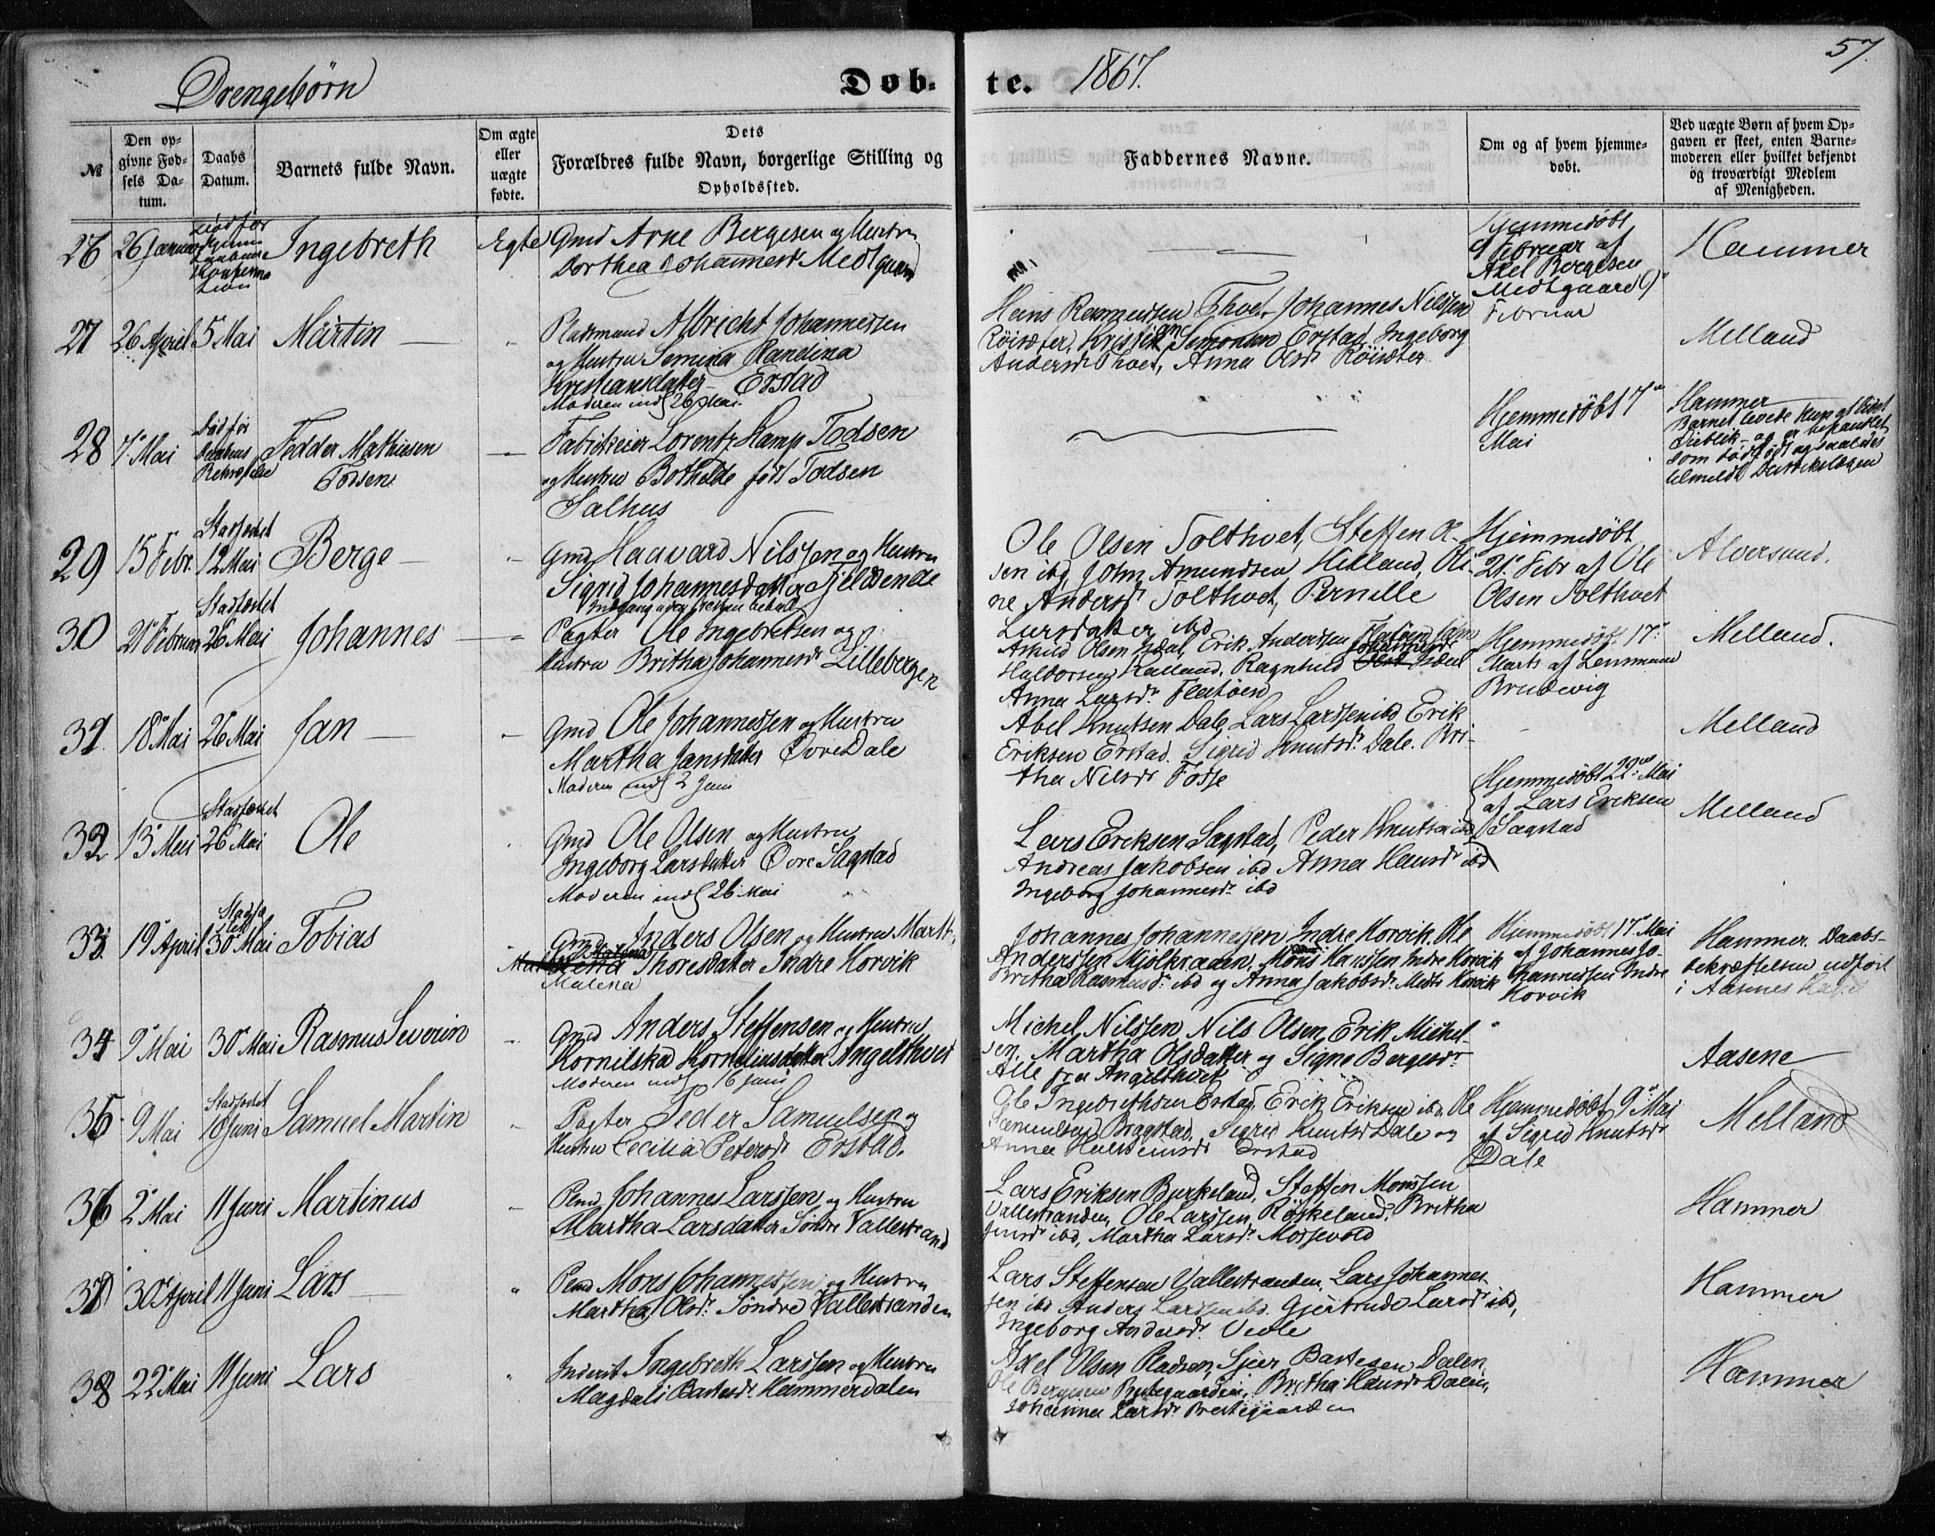 57.
Drengebørn
Døb- te. 1867.
№
Den op-
givne Fød-
sels Da-
tum.
Daabs
Datum.
Barnets fulde Navn.
Om ægte
eller
uægte
fødte.
Dets
Forældres fulde Navn, borgerlige Stilling og
Opholdssted.
Faddernes Navne.
Om og af hvem hjemme-
døbt.
Ved uægte Børn af hvem Op-
gaven er skeet, enten Barne-
moderen eller hvilket bekjendt
og troværdigt Medlem
af Menigheden.
26 26 Januar død før
Ingebreth Egte Gmd Arne Bergesen og Hustru
Dorthea Johannesdr Medtgaard
Hjemmedøbt
Februar af
Axel Bergesen
Medtgaard 9de
Februar
Hammer
27 26 April 5 Mai Martin
Pladsmand Albricht Johannessen
og Hustru Semina Randina
Kristiansdatter Erstad
Moderen indl 26 Mai
Hans Rasmussen Thvet, Johannes Nilssen
Røisæter, Kristian Simonsen Erstad, Ingeborg
Andersdr Thvet, Anna Olsdr Røisæter
Melland
28 7 Mai død før
Bekræftelse
Fedder Mathiesen
Todsen
Fabrikeier Lorentz Kamp Todsen
og Hustru Bothilde født Todsen
Salhus
Hjemmedøbt 7de
Mai
Hammer
Barnet levede kun et Øieblik og er behandlet
som dødfødt og saaledes
tilmeldt Distriktslægen
29 15 Febr. Stadfæstet
12 Mai Berge
Gmd Haavard Nilssen og Hustru
Sigrid Johannesdatter Gjeldende
Ole Olsen Tolthvet, Steffen Ol-
sen ibd, John Amundsen Helland, Oli-
ne Andersdr Tolthvet, Pernille
Larsdatter ibd
Hjemmedøbt
21 Febr af Ole
Olsen Tolthvet
Alversund.
30 21 Februar Stadfæstet
26 Mai Johannes
Pagter Ole Ingebretsen og
Hustru Britha Johannesdr Lillebergen
Askild Olsen Isdal, Erik Andersen Flatøen
Haldorsen Kalland, Ragnhild Johannesdr Isdal
Anna Larsdr Flatøen
Hjemmedøbt 17
Marts af Lensmand
Brudevig
Melland.
31 18 Mai 26 Mai Jan
Gmd Ole Johannessen og Hustru
Martha Jansdatter Øvre Dale
Moderen indl 2 Juni
Abel Knutsen Dale, Lars Larssen ibd Erik
Eriksen Erstad, Sigrid Knutsdr Dale. Bri-
tha Nilsdr Fosse
Melland
32 13 Mai Stadfæstet
26 Mai Ole
Gmd Ole Olsen og Hustru
Ingeborg Larsdatter Øvre Sagstad
Moderen indl 26 Mai
Lars Eriksen Sagstad, Peder Knutsen ibd
Andreas Jakobsen ibd Anna Hansdr ibd
Ingeborg Johannesdr ibd
Hjemmedøbt 22de Mai
af Lars Eriksen
Sagstad
Melland
33 19 April Stadfæ
stet
30 Mai Tobias
Gmd Anders Olsen og Hustru Marth
Malena Thoresdatter Indre Horvik
Malena
Johannes Johannessen Indre Horvik, Ole
Anderssen Mjølkraaen, Mons Hanssen Indre Horvik
Britha Rasmusdr ibd og Anna Jakobsdr Midtre Horvik
Hjemmedøbt 17 Mai
af Johannes Jo-
hannessen Indre
Horvik
Hammer Daabs-
bekræftelsen udført
i Aasnes
34 9 Mai 30 Mai Rasmus Severin
Gmd Anders Steffensen og Hustru
Kornilska Korneliusdatter Angelthvet
Moderen indl 16 Juni
Michel Nilssen, Nils Olsen, Erik Michel-
sen, Martha Olsdatter og Signe Bergesdr
Alle fra Angelthvet
Aasene
35 9 Mai Stadfæstet
10 Juni Samuel Martin
Pagter Peder Samuelsen og
Hustru Cecilia Petersdr Erstad.
Ole Ingebrethsen Erstad, Erik Eriksen ibd, Ole
Samuelsen Bragstad, Sigrid Knutsdr Dale og
Anna Halsteinsdr Erstad
Hjemmedøbt 9 Mai
af Sigrid Knutsdr
Dale
Melland
36 2 Mai 11 Juni Martinus
Pmd Johannes Larssen og Hustru
Martha Larsdatter Søndre Vallestrand
Lars Eriksen Burkeland, Steffen Monssen
Vallestranden, Ole Larssen Røskeland, Britha
Jensdr ibd, Martha Larsdr Mossevold
Hammer
37 30 April 11 Juni Lars
Pmd Mons Johannessen og Hustru
Martha Olsdr Søndre Vallestranden
Lars Steffensen Vallestranden, Lars Johannes-
sen ibd Anders Larssen ibd. Gjertrude Larsdr ibd,
Ingeborg Andersdr Vedle
Hammer
38 22 Mai 11 Juni Lars
Inderst Ingebreth Larssen og Hustru
Magdali Bastesdr Hammerdalen
Axel Olsen Pladsen, Sjur Bastesen Dalen,
Ole Bergesen Brutegaarden, Britha Hansdr Dalen,
Johanna Larsdr
Hammer